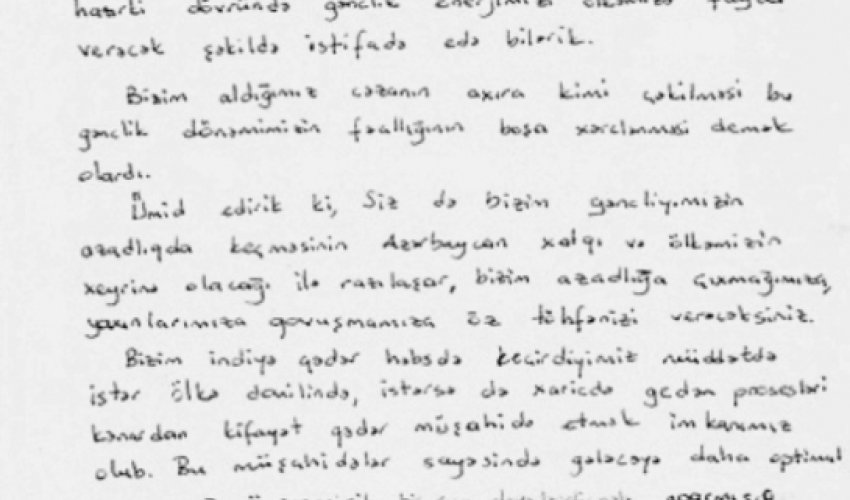 dövründə gənclik enerjimizi ölkəmizə
verəcək şəkildə istifadə edə bilərik.
Bizim aldığımız cəzanın axıra kimi çəkilməsi bu
gənclik dönəmimizin fəallığının boşa xərclənməsi demək
olardı.
Ümid edirik ki, Siz də bizim gəncliyimizin
azadlıqda keçməsinin Azərbaycan xalqı və ölkəmizin
xeyrinə olacağı ilə razılaşar, bizim azadlığa çıxmağımıza,
yaxınlarımıza qovuşmamıza öz töhfənizi verəcəksiniz.
Bizim indiyə qədər həbsdə keçirdiyimiz müddətdə
istər ölkə daxilində, istərsə də xaricdə gedən prosesləri
kənardan kifayət qədər müşahidə etmək imkanımız
olub. Bu müşahidələr sayəsində gələcəyə daha optimal